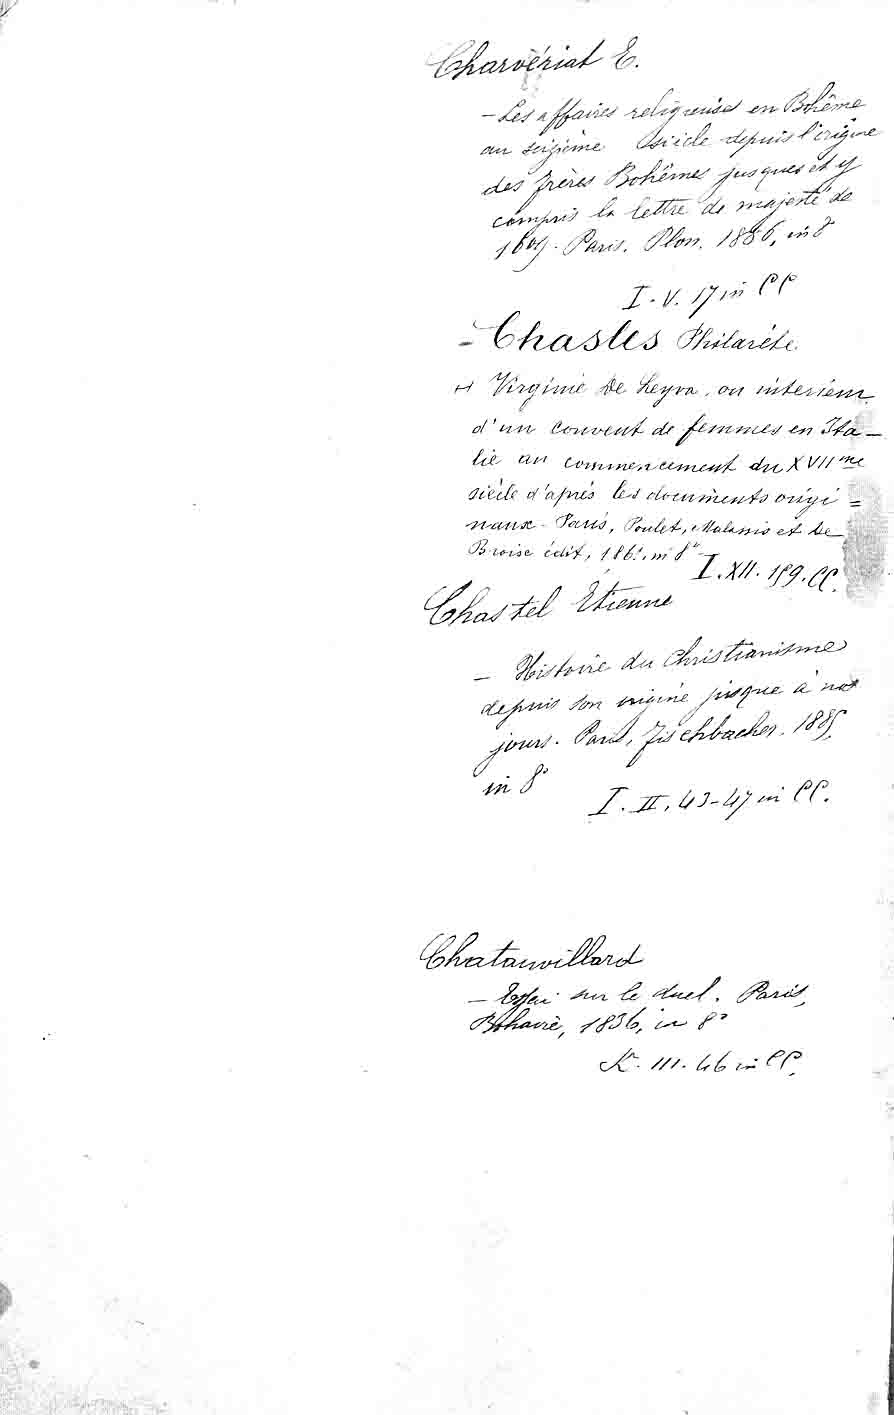 Charvériat E.
- Les affaires religieuses en Bohême
au seizième siècle depuis l'origine
des frères Bohêmes jusques et y
compris la lettre de majesté de
1609. Paris. Plon. 1886, in 8
I. V. 17 in CC
- Chasles Philarète
Virginie de Leyva, ou interieur
d'un couvent de femmes en Ita-
lie au commencement du XVIIme
siècle d'après les documents origi=
naux - Paris, Poulet, Malassis et De
Broise édit, in 8°
I. XII. 159. CC.
Chastel Étienne
- Histoire du Christianisme
depuis son origine jusque à nos
jours. Paris, Fischbacher. 1885,
in 8°
I. II, 43-47 in CC.
Chatauvillard
- Essai sur le duel. Paris,
Bohaire, 1836, in 8°
K. III. 46 in CC.